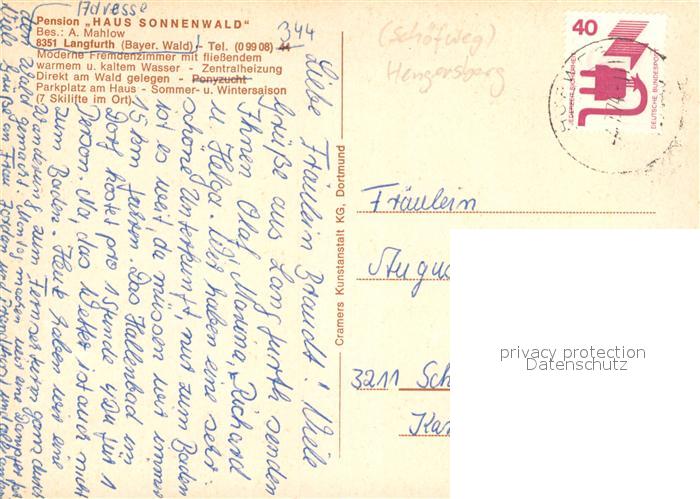 Adresse
Pension „HAUS SONNENWALD"
Bes.: A. Mahlow
8351 Langfurth (Bayer. Wald) - Tel. (0 99 08) 44
344
Moderne Fremdenzimmer mit fließendem
warmem u. kaltem Wasser - Zentralheizung
Direkt am Wald gelegen - Ponyzucht
Parkplatz am Haus - Sommer- u. Wintersaison
(7 Skilifte im Ort)
Liebe Fräulein Brandt! Viele
Grüße aus Langfurth senden
Ihnen Olaf, Martina, Richard
u. Helga. Wir haben eine sehr
schöne Unterkunft, nur zum Baden
ist es weit, da müssen wir immer
15 km fahren. Das Hallenbad im
Dorf kostet pro 1 Stunde 4 DM für 1
Person. Na, das Wetter ist auch nicht
zum Baden. Heute haben wir eine
Wanderung zum Fernsehturm ganz durch
den Wald gemacht.
Viele Grüße an Frau
Cramers Kunstanstalt KG, Dortmund
(Schöfweg)
Hengersberg
40
JEDERZEIT SICHERHEIT
DEUTSCHE BUNDESPOST
Fräulein
Augus
3211 Sch
Kar
privacy protection
Datenschutz